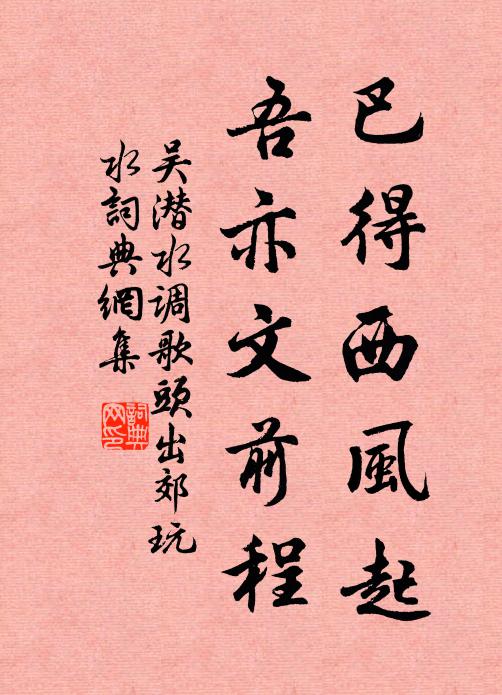 已得西風起
吾亦文前程
吴潜水调歌頭出郊玩
水詞典網集
詞典
网印